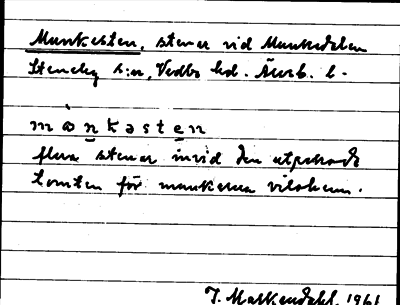 Munkesten, stenar vid Munkedalen
Stenehg s:n, Vedbo hd. Åverb. l.
mònkasten
flera stenar invid den utpekade
tomten för munkarna vilohem.
J. Malkendahl, 1961